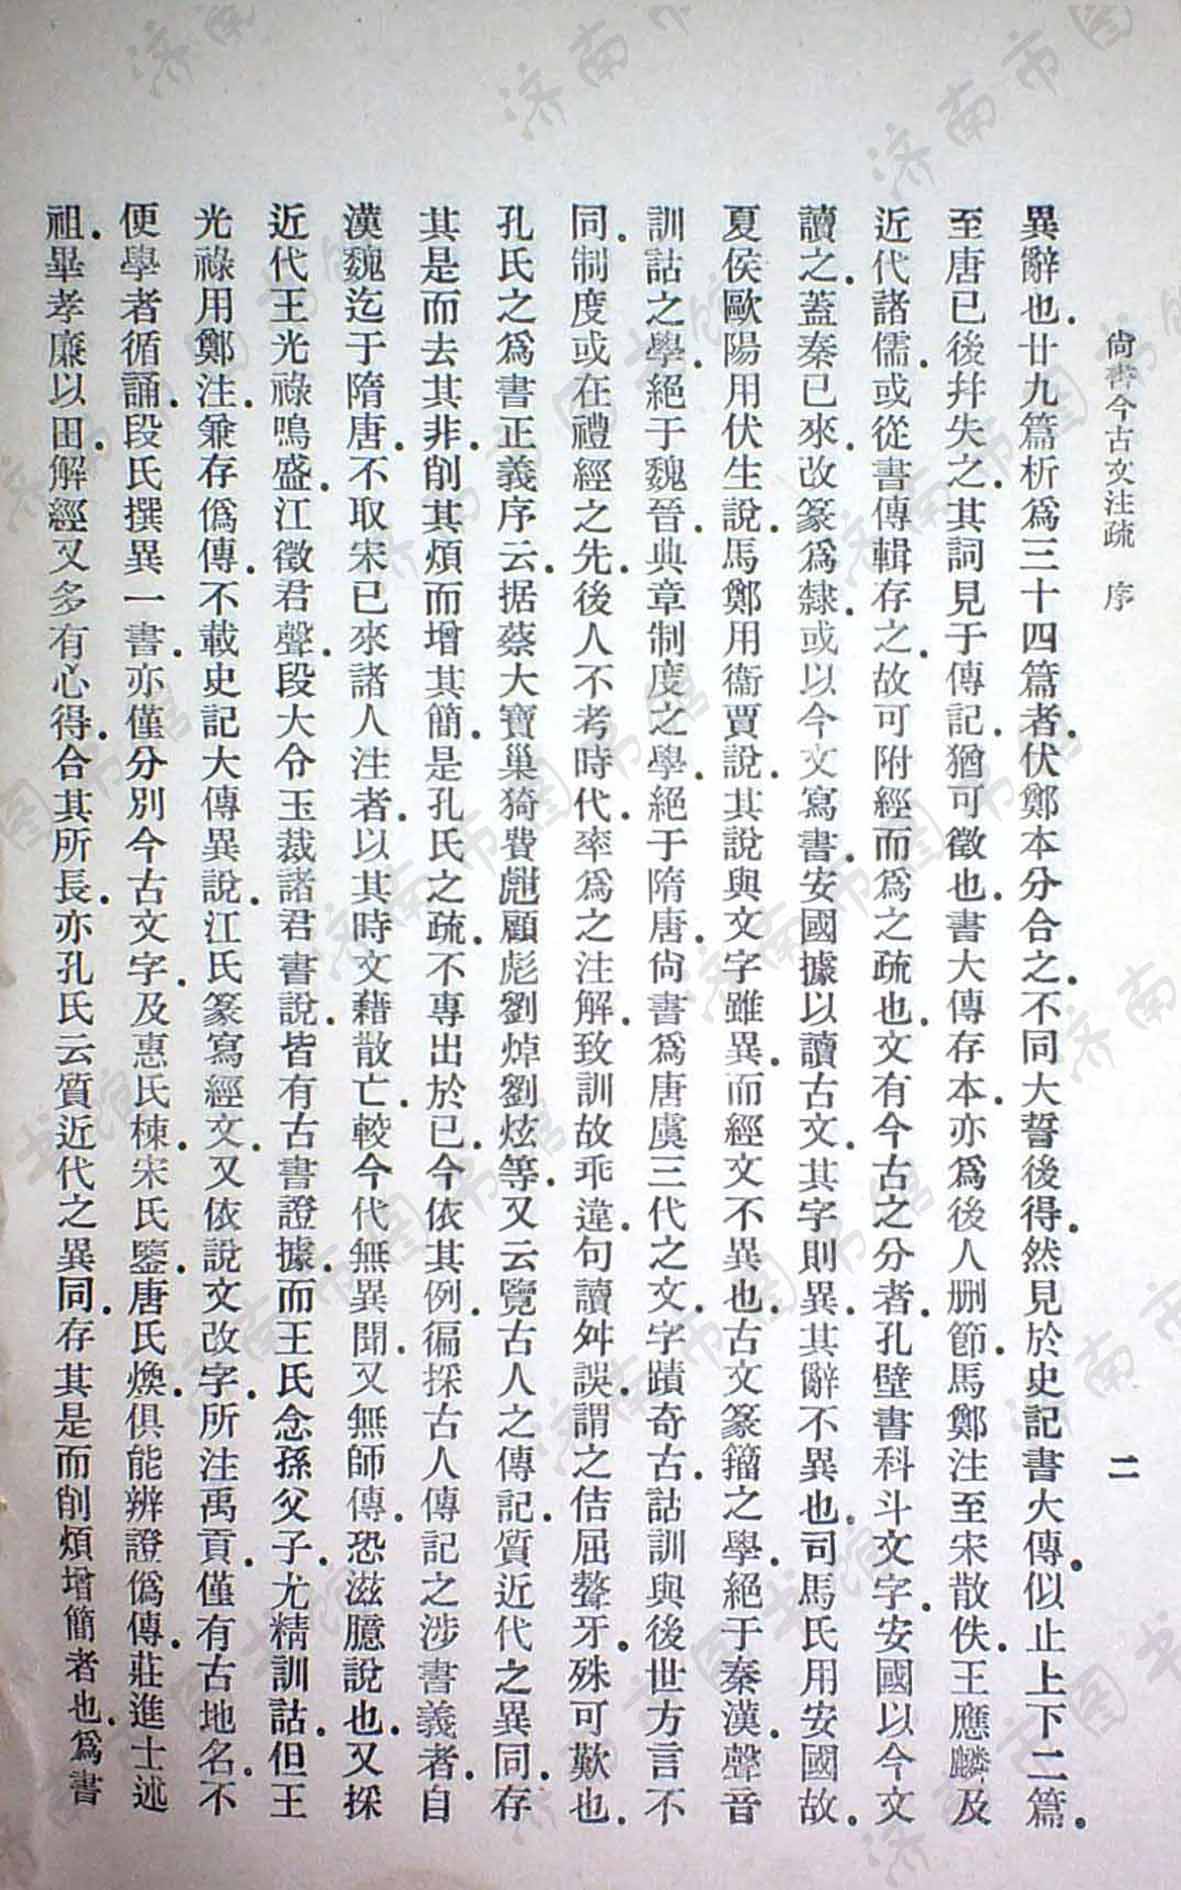 尙書今古文注疏　序　二
異辭也．廿九篇析爲三十四篇者．伏鄭本分合之．不同大誓後得．然見於史記書大傳．似止上下二篇．
至唐已後幷失之．其詞見于傳記．猶可徵也．書大傳存本．亦爲後人刪節．馬鄭注至宋散佚．王應麟及
近代諸儒．或從書傳輯存之．故可附經而爲之疏也．文有今古之分者．孔壁書科斗文字．安國以今文
讀之．蓋秦已來．改篆爲隸．或以今文寫書．安國據以讀古文．其字則異．其辭不異也．司馬氏用安國故．
夏侯歐陽用伏生說．馬鄭用衞賈說．其說與文字雖異．而經文不異也．古文篆籀之學．絕于秦漢．聲音
訓詁之學．絕于魏晉．典章制度之學．絕于隋唐．尙書爲唐虞三代之文．字蹟奇古．詁訓與後世方言不
同．制度或在禮經之先．後人不考時代．率爲之注解．致訓故乖違．句讀舛誤．謂之佶屈聱牙．殊可歎也．
孔氏之爲書正義序云．据蔡大寶巢猗費甝顧彪劉焯劉炫等．又云覽古人之傳記．質近代之異同．存
其是而去其非．削其煩而增其簡．是孔氏之疏．不專出於已．今依其例．徧採古人傳記之涉書義者．自
漢魏迄于隋唐．不取宋已來諸人注者．以其時文藉散亡．較今代無異聞．又無師傳．恐滋臆說也．又採
近代王光祿鳴盛．江徵君聲．段大令玉裁諸君書說．皆有古書證據．而王氏念孫父子．尤精訓詁．但王
光祿用鄭注．兼存僞傳．不載史記大傳異說．江氏篆寫經文．又依說文改字．所注禹貢．僅有古地名．不
便學者循誦．段氏撰異一書．亦僅分別今古文字．及惠氏棟．宋氏鑒．唐氏煥．俱能辨證僞傳．莊進士述
祖．畢孝廉以田．解經又多有心得．合其所長．亦孔氏云質近代之異同．存其是而削煩增簡者也．爲書